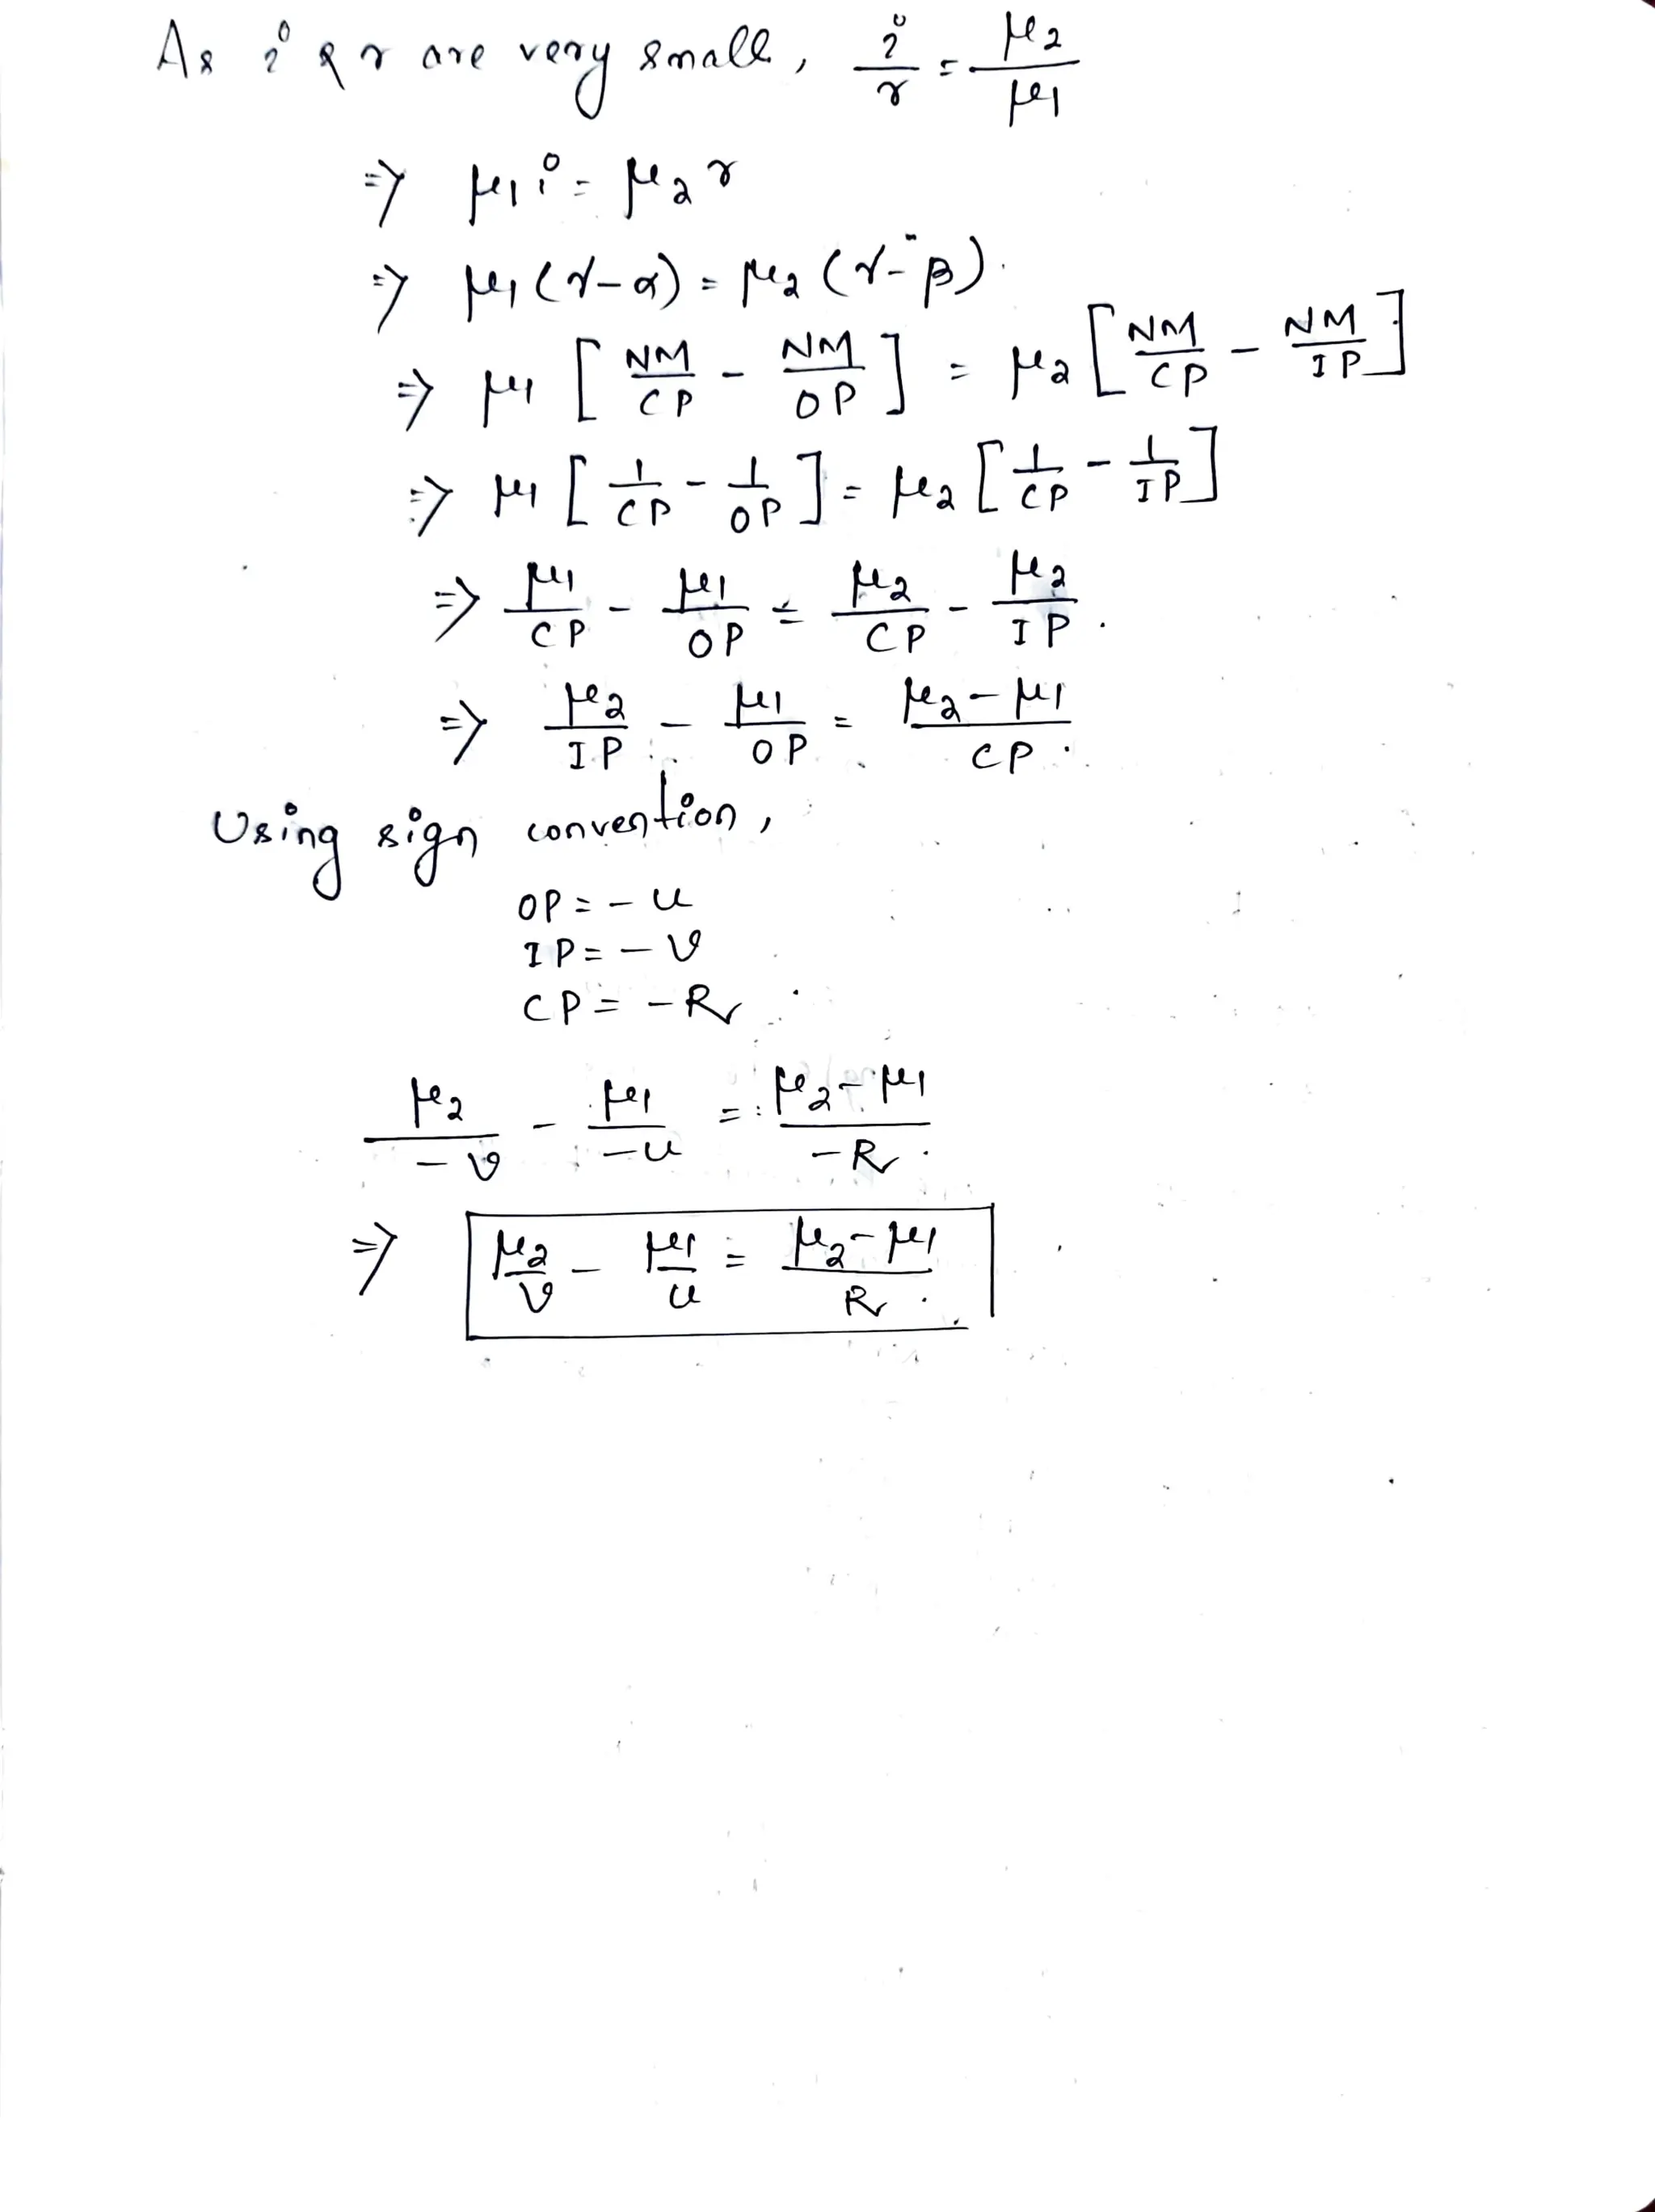 As i & r are very small, i/r = μ2/μ1
⇒ μ1 i = μ2 r
⇒ μ1 (γ-α) = μ2 (γ-β).
⇒ μ1 [NM/CP - NM/OP] = μ2 [NM/CP - NM/IP]
⇒ μ1 [1/CP - 1/OP] = μ2 [1/CP - 1/IP]
⇒ μ1/CP - μ1/OP = μ2/CP - μ2/IP.
⇒ μ2/IP - μ1/OP = μ2-μ1/CP.
Using sign convention,
OP = -u
IP = -v
CP = -R
μ2/-v - μ1/-u = μ2-μ1/-R.
⇒ μ2/v - μ1/u = μ2-μ1/R.